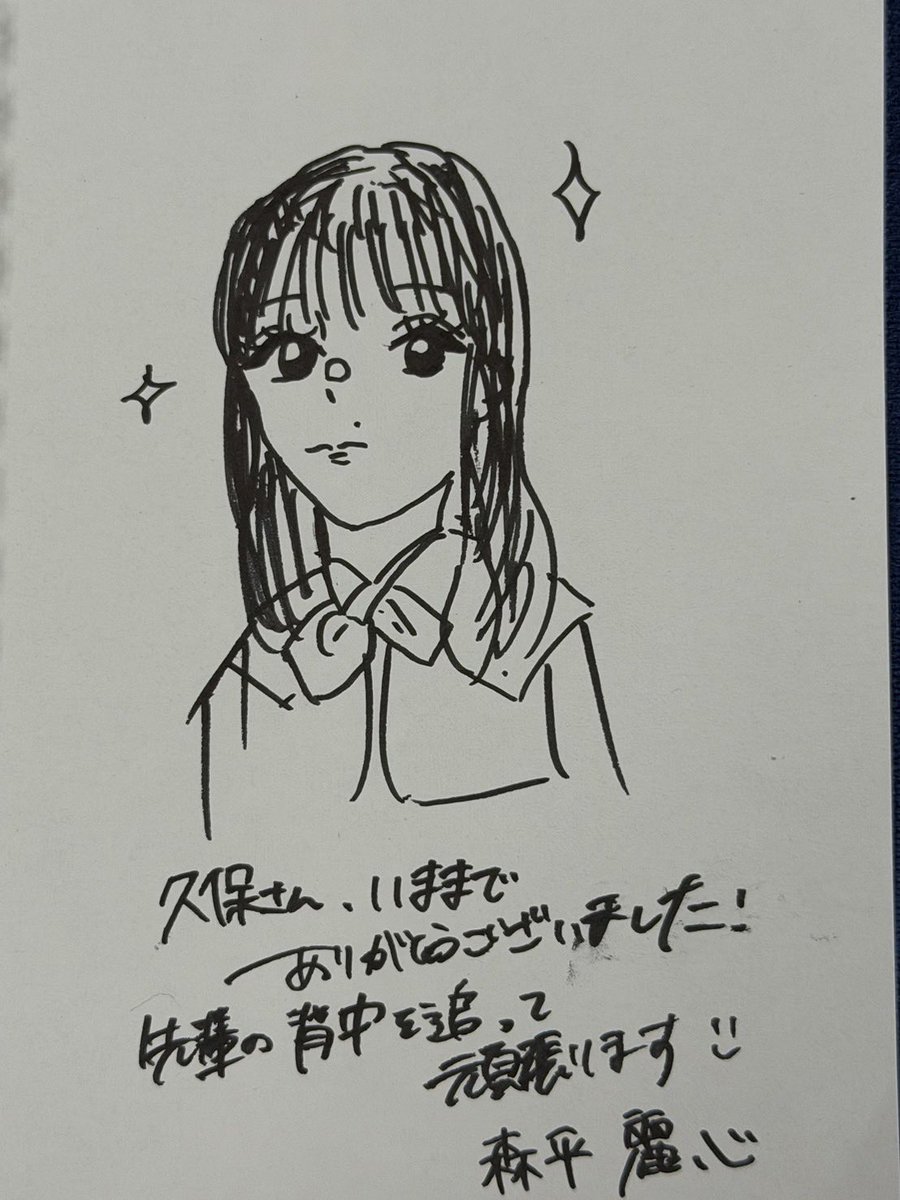 久保さん、いままで
ありがとうございました!
先輩の背中を追って
頑張ります
森平 麗心